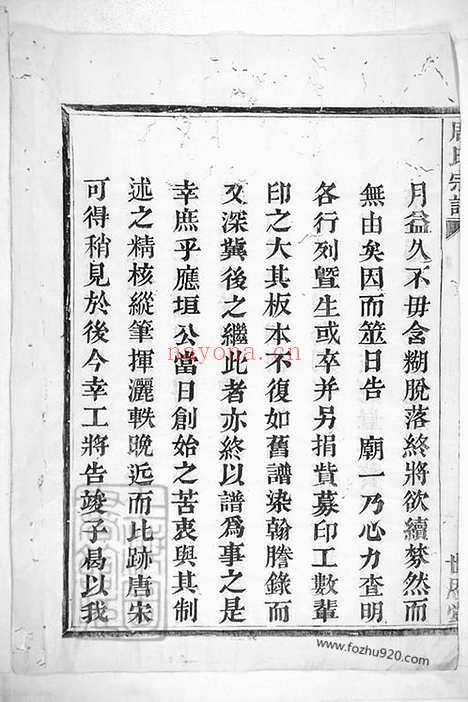 周氏宗譜
月益久不毋含糊脫落終將欲續棼然而
無由矣因而筮日告　廟一乃心力查明
各行列暨生或卒并另捐貲募印工數輩
印之大其板本不復如舊譜染翰謄錄而
又深冀後之繼此者亦終以譜爲事之是
幸庶乎應垣公當日創始之苦衷與其制
述之精核縱筆揮灑軼晚近而比跡唐宋
可得稍見於後今幸工將告竣子曷以我
nayona.cn
www.fozhu920.com